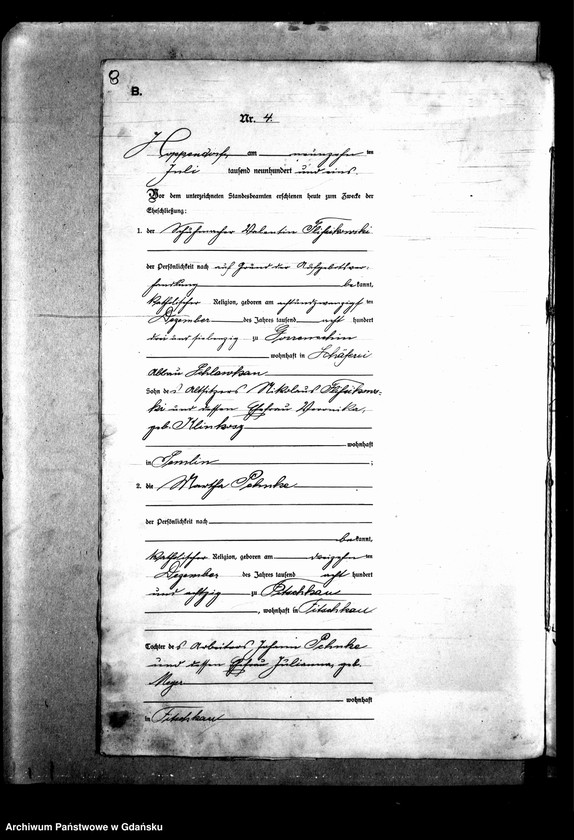 8
B.
Nr. 4.
Hoppendorf, am neunzehn ten
Juli tausend neunhundert und eins.
Vor dem unterzeichneten Standesbeamten erschienen heute zum Zwecke der
Eheschließung:
1. der Schuhmacher Valentin
der Persönlichkeit nach auf Grund der Aufgebotsver-
handlung bekannt,
katholischer Religion, geboren am achtundzwanzigsten
Dezember des Jahres tausend acht hundert
drei und siebenzig zu
wohnhaft in Schäferei
Abbau
Sohn des Altsitzers Nikolaus
ki und dessen Ehefrau Veronika,
geb. Klinkosz
wohnhaft
in Semlin ;
2. die Martha Pehnke
der Persönlichkeit nach
bekannt,
katholischer Religion, geboren am ten
Dezember des Jahres tausend acht hundert
und achtzig zu Titschkau
, wohnhaft in Titschkau
Tochter des Arbeiters Johann Pehnke
und dessen Ehefrau Julianna, geb.
Meyer
wohnhaft
in Titschkau
Archiwum Państwowe w Gdańsku